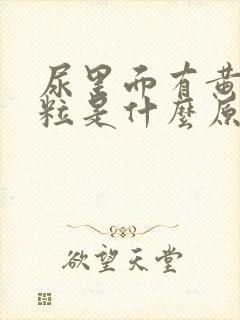 尿里面有黄
粒是什麼原
欲望天堂